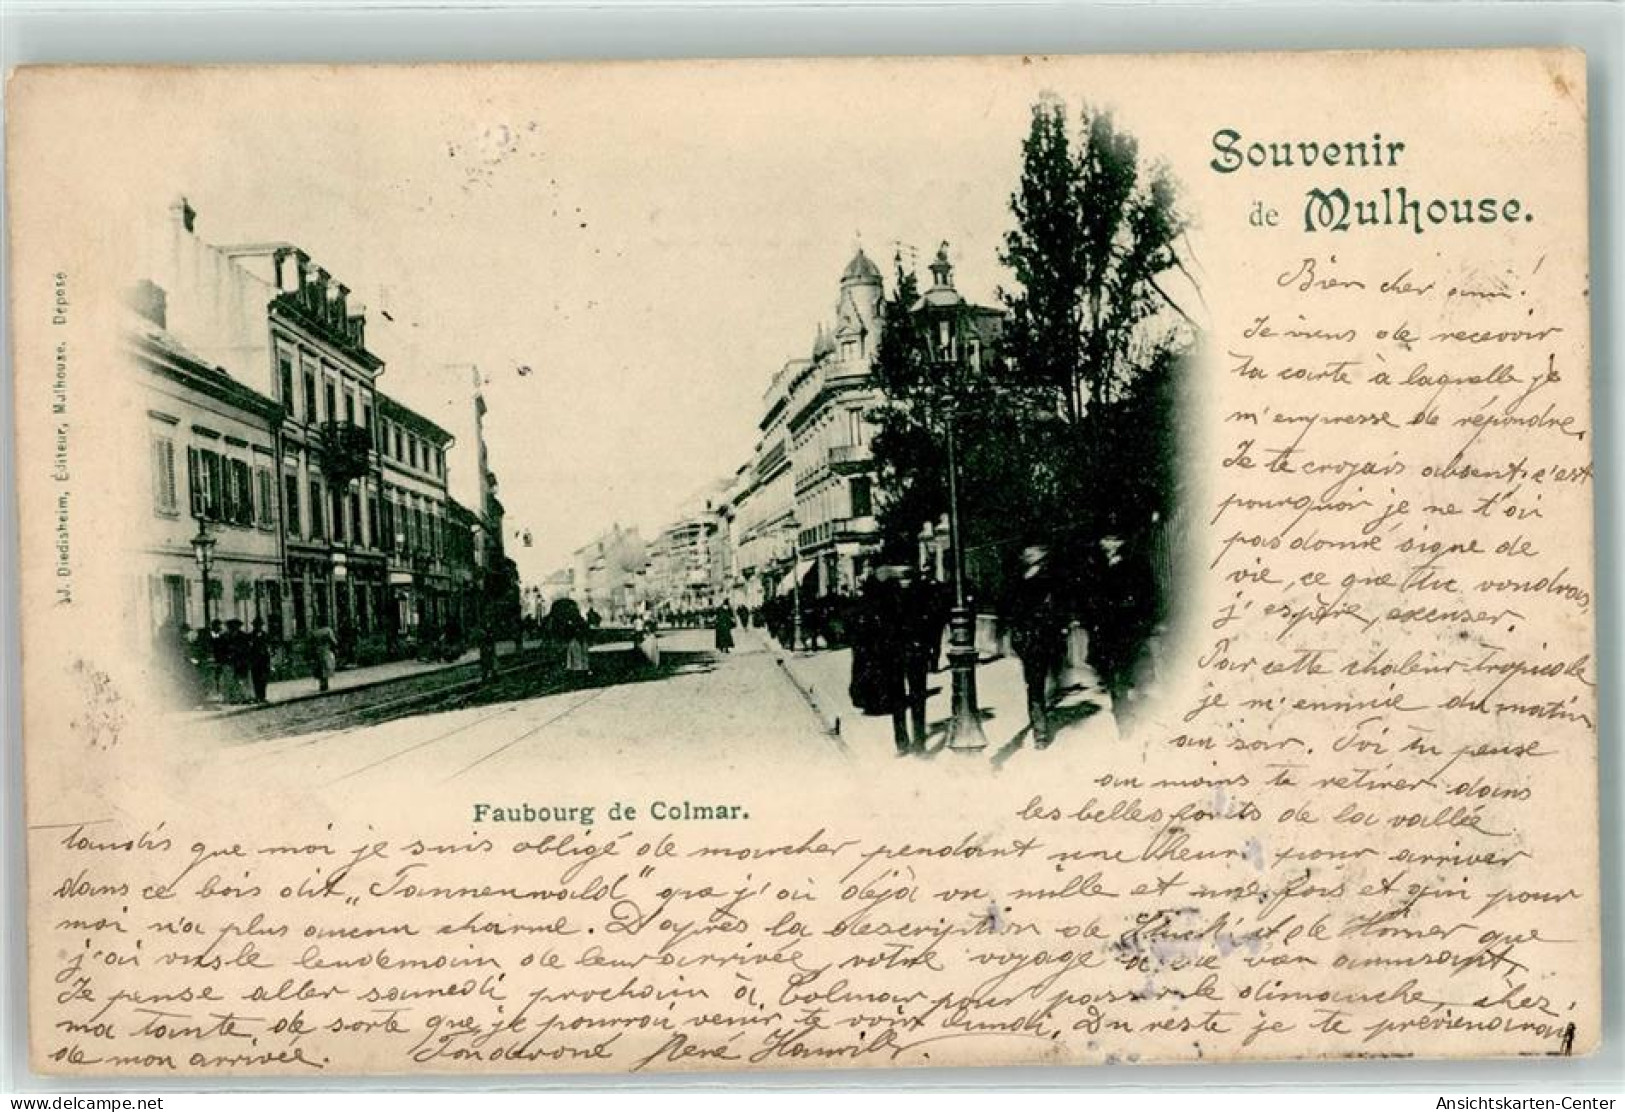 Souvenir
de Mulhouse.
JJ. Diedisheim, Éditeur, Mulhouse. Déposé
Faubourg de Colmar.
Bien cher ami!
Je viens de recevoir
ta carte à laquelle je
m'empresse de répondre.
Je te croyais absent c'est
pourquoi je ne t'ai
pas donné signe de
vie, ce que tu voudras,
j'espère, excuser.
Par cette chaleur tropicale
je m'ennuie du matin
au soir. Toi tu peuse
au moins te retirer dans
les belles forêts de la vallée
tandis que moi je suis obligé de marcher pendant une heure pour arriver
dans ce bois dit „Tannenwald" que j'ai déjà vu mille et une fois et qui pour
moi n'a plus aucun charme. D'après la description de et de que
j'ai vus le lendemain de leur arrivée, votre voyage a été amusant,
Je pense aller samedi prochain à Colmar pour passer le dimanche, chez
ma tante, de sorte que je pourrai venir te voir lundi. Du reste je te préviendrai
de mon arrivée. Ton dévoué René
Ansichtskarten-Center